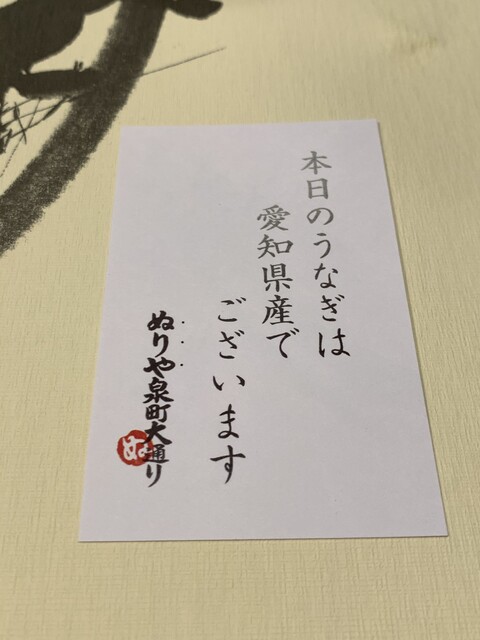 本日のうなぎは
愛知県産で
ございます
ぬりや泉町大通り
ぬ